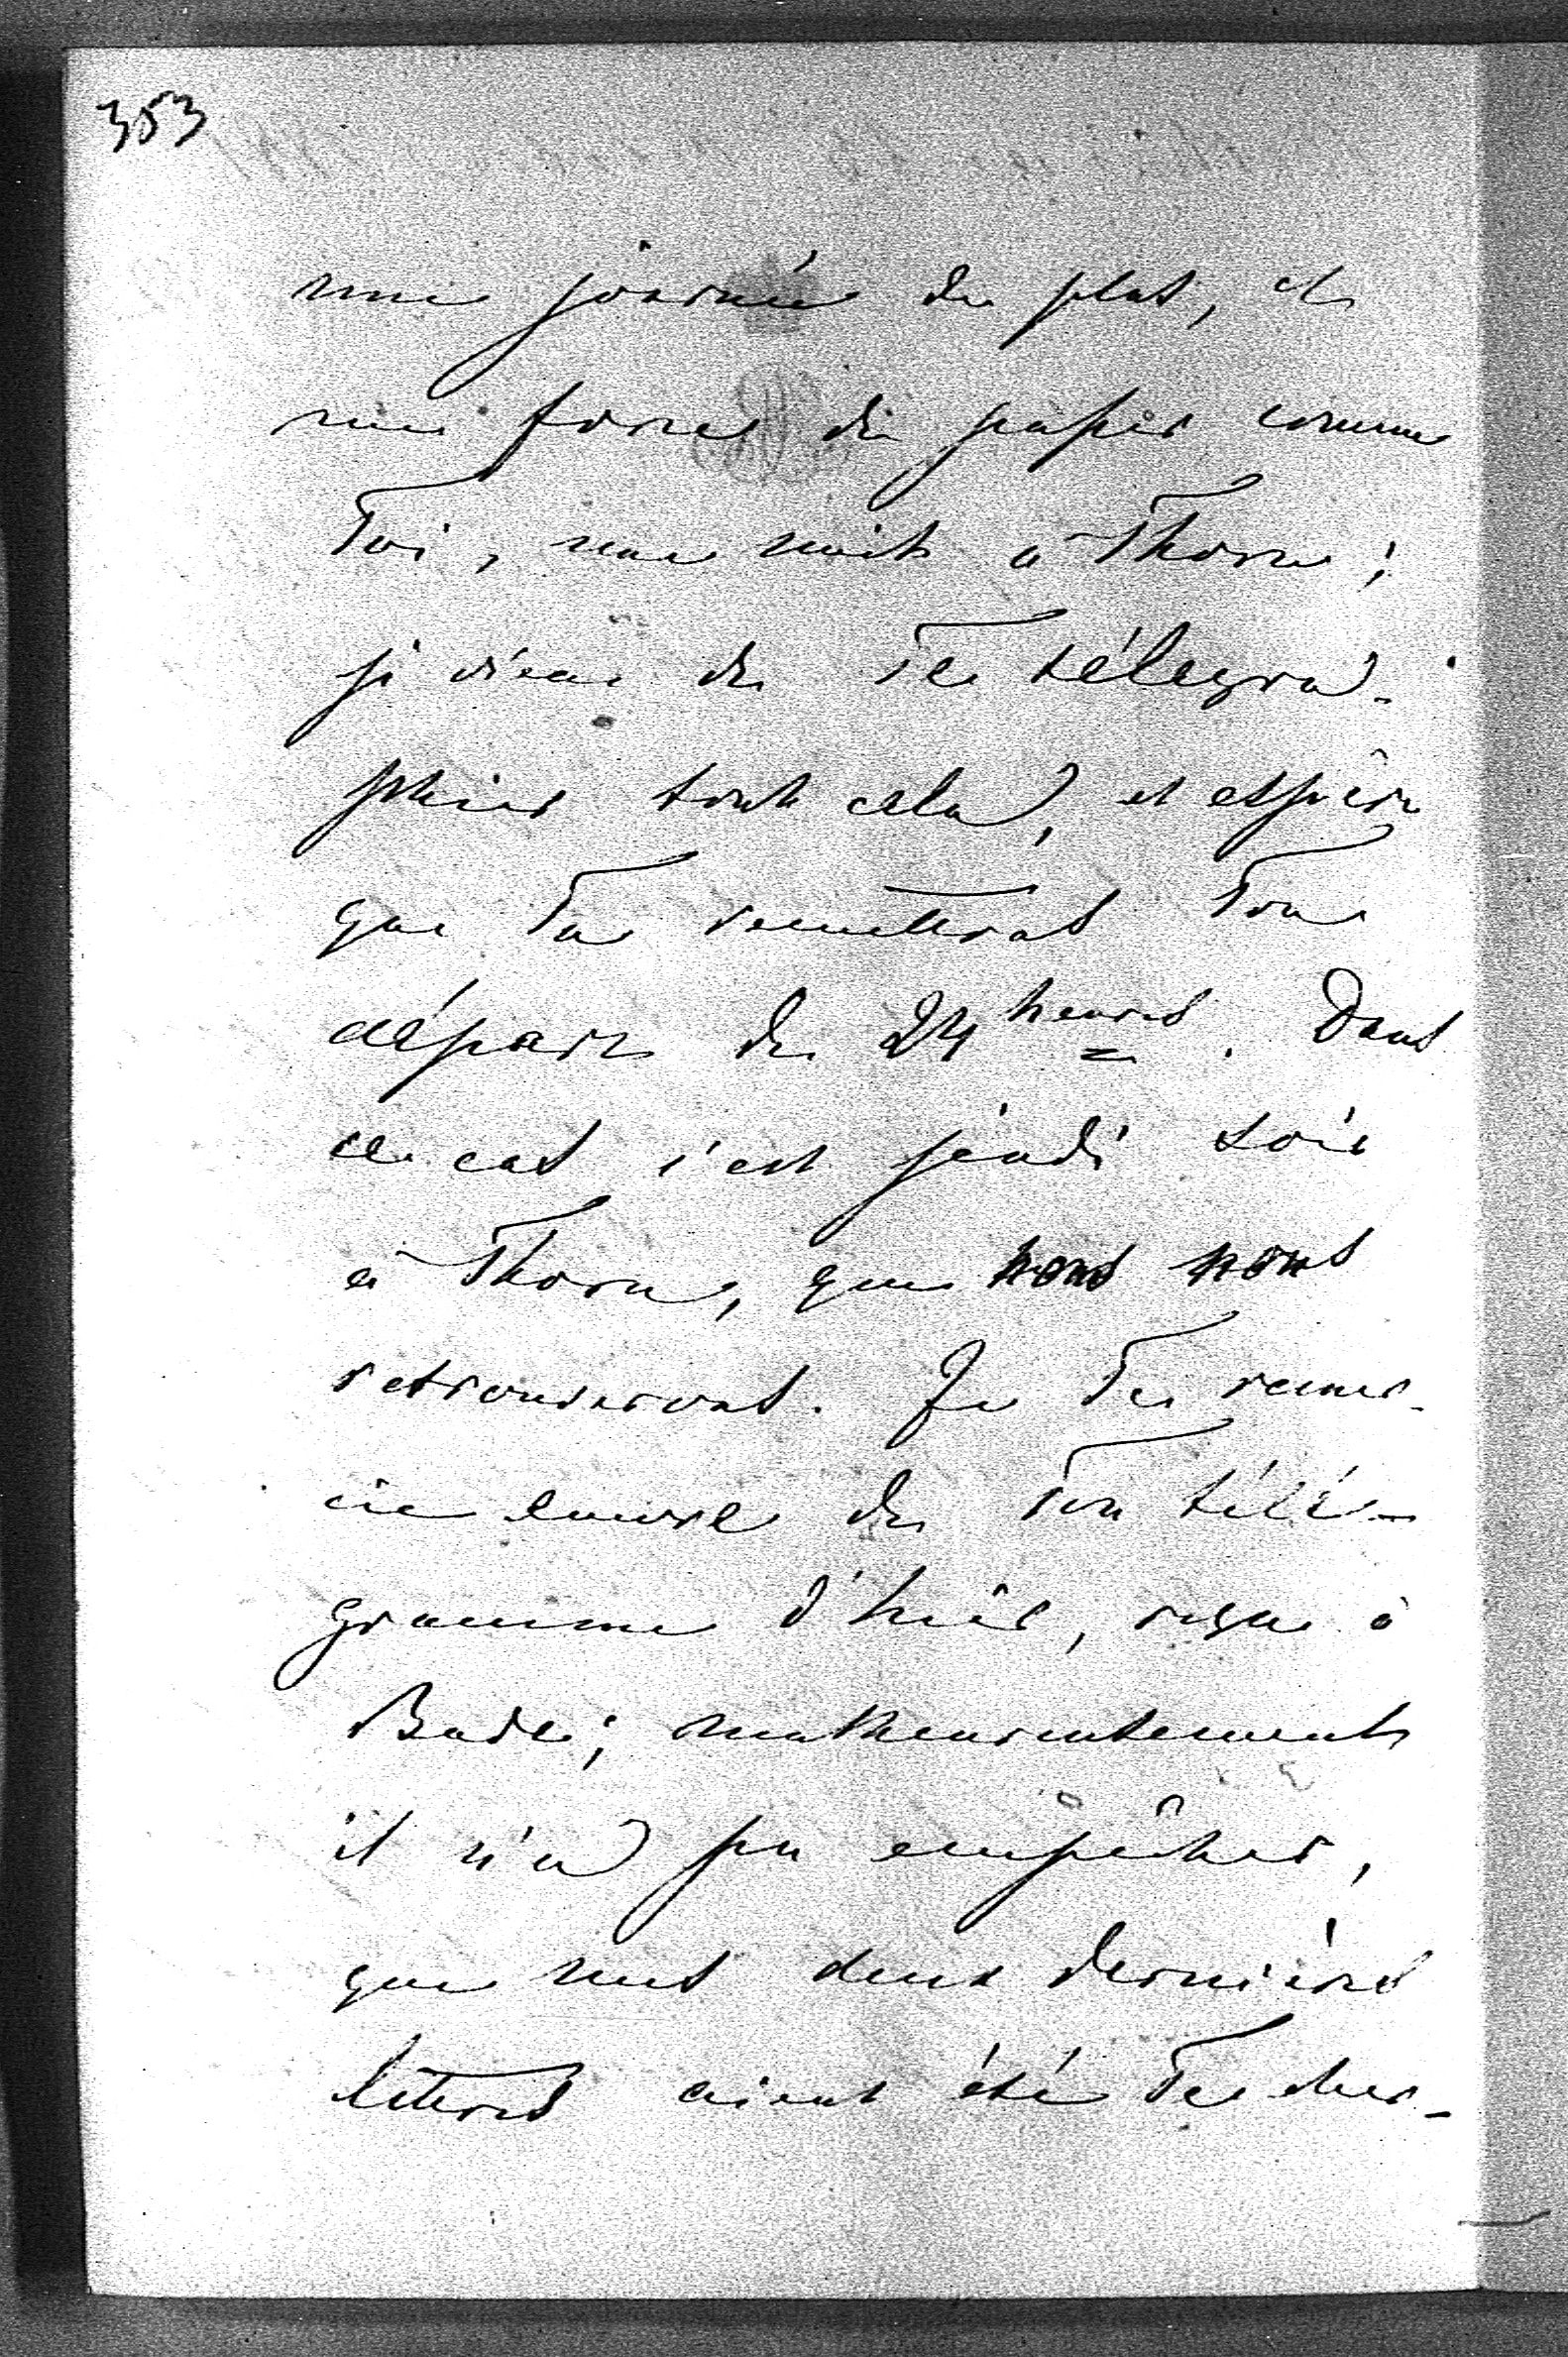 353
une journée de plus, et
me force de passer comme
Toi, une nuit à Thorn;
je viens de Te télegra-
phier tout cela, et espère
que Tu remettras Ton
départ de 24 heures. Dans
ce cas c'est jeudi soir
à Thorn, que nous nous
retrouverons. Je Te remer-
cie encore de Ton télé-
gramme d'hier, reçu à
Bade; malheureusement
il n'a pu empêcher,
que mes deux dernières
lettres aient été Te cher-